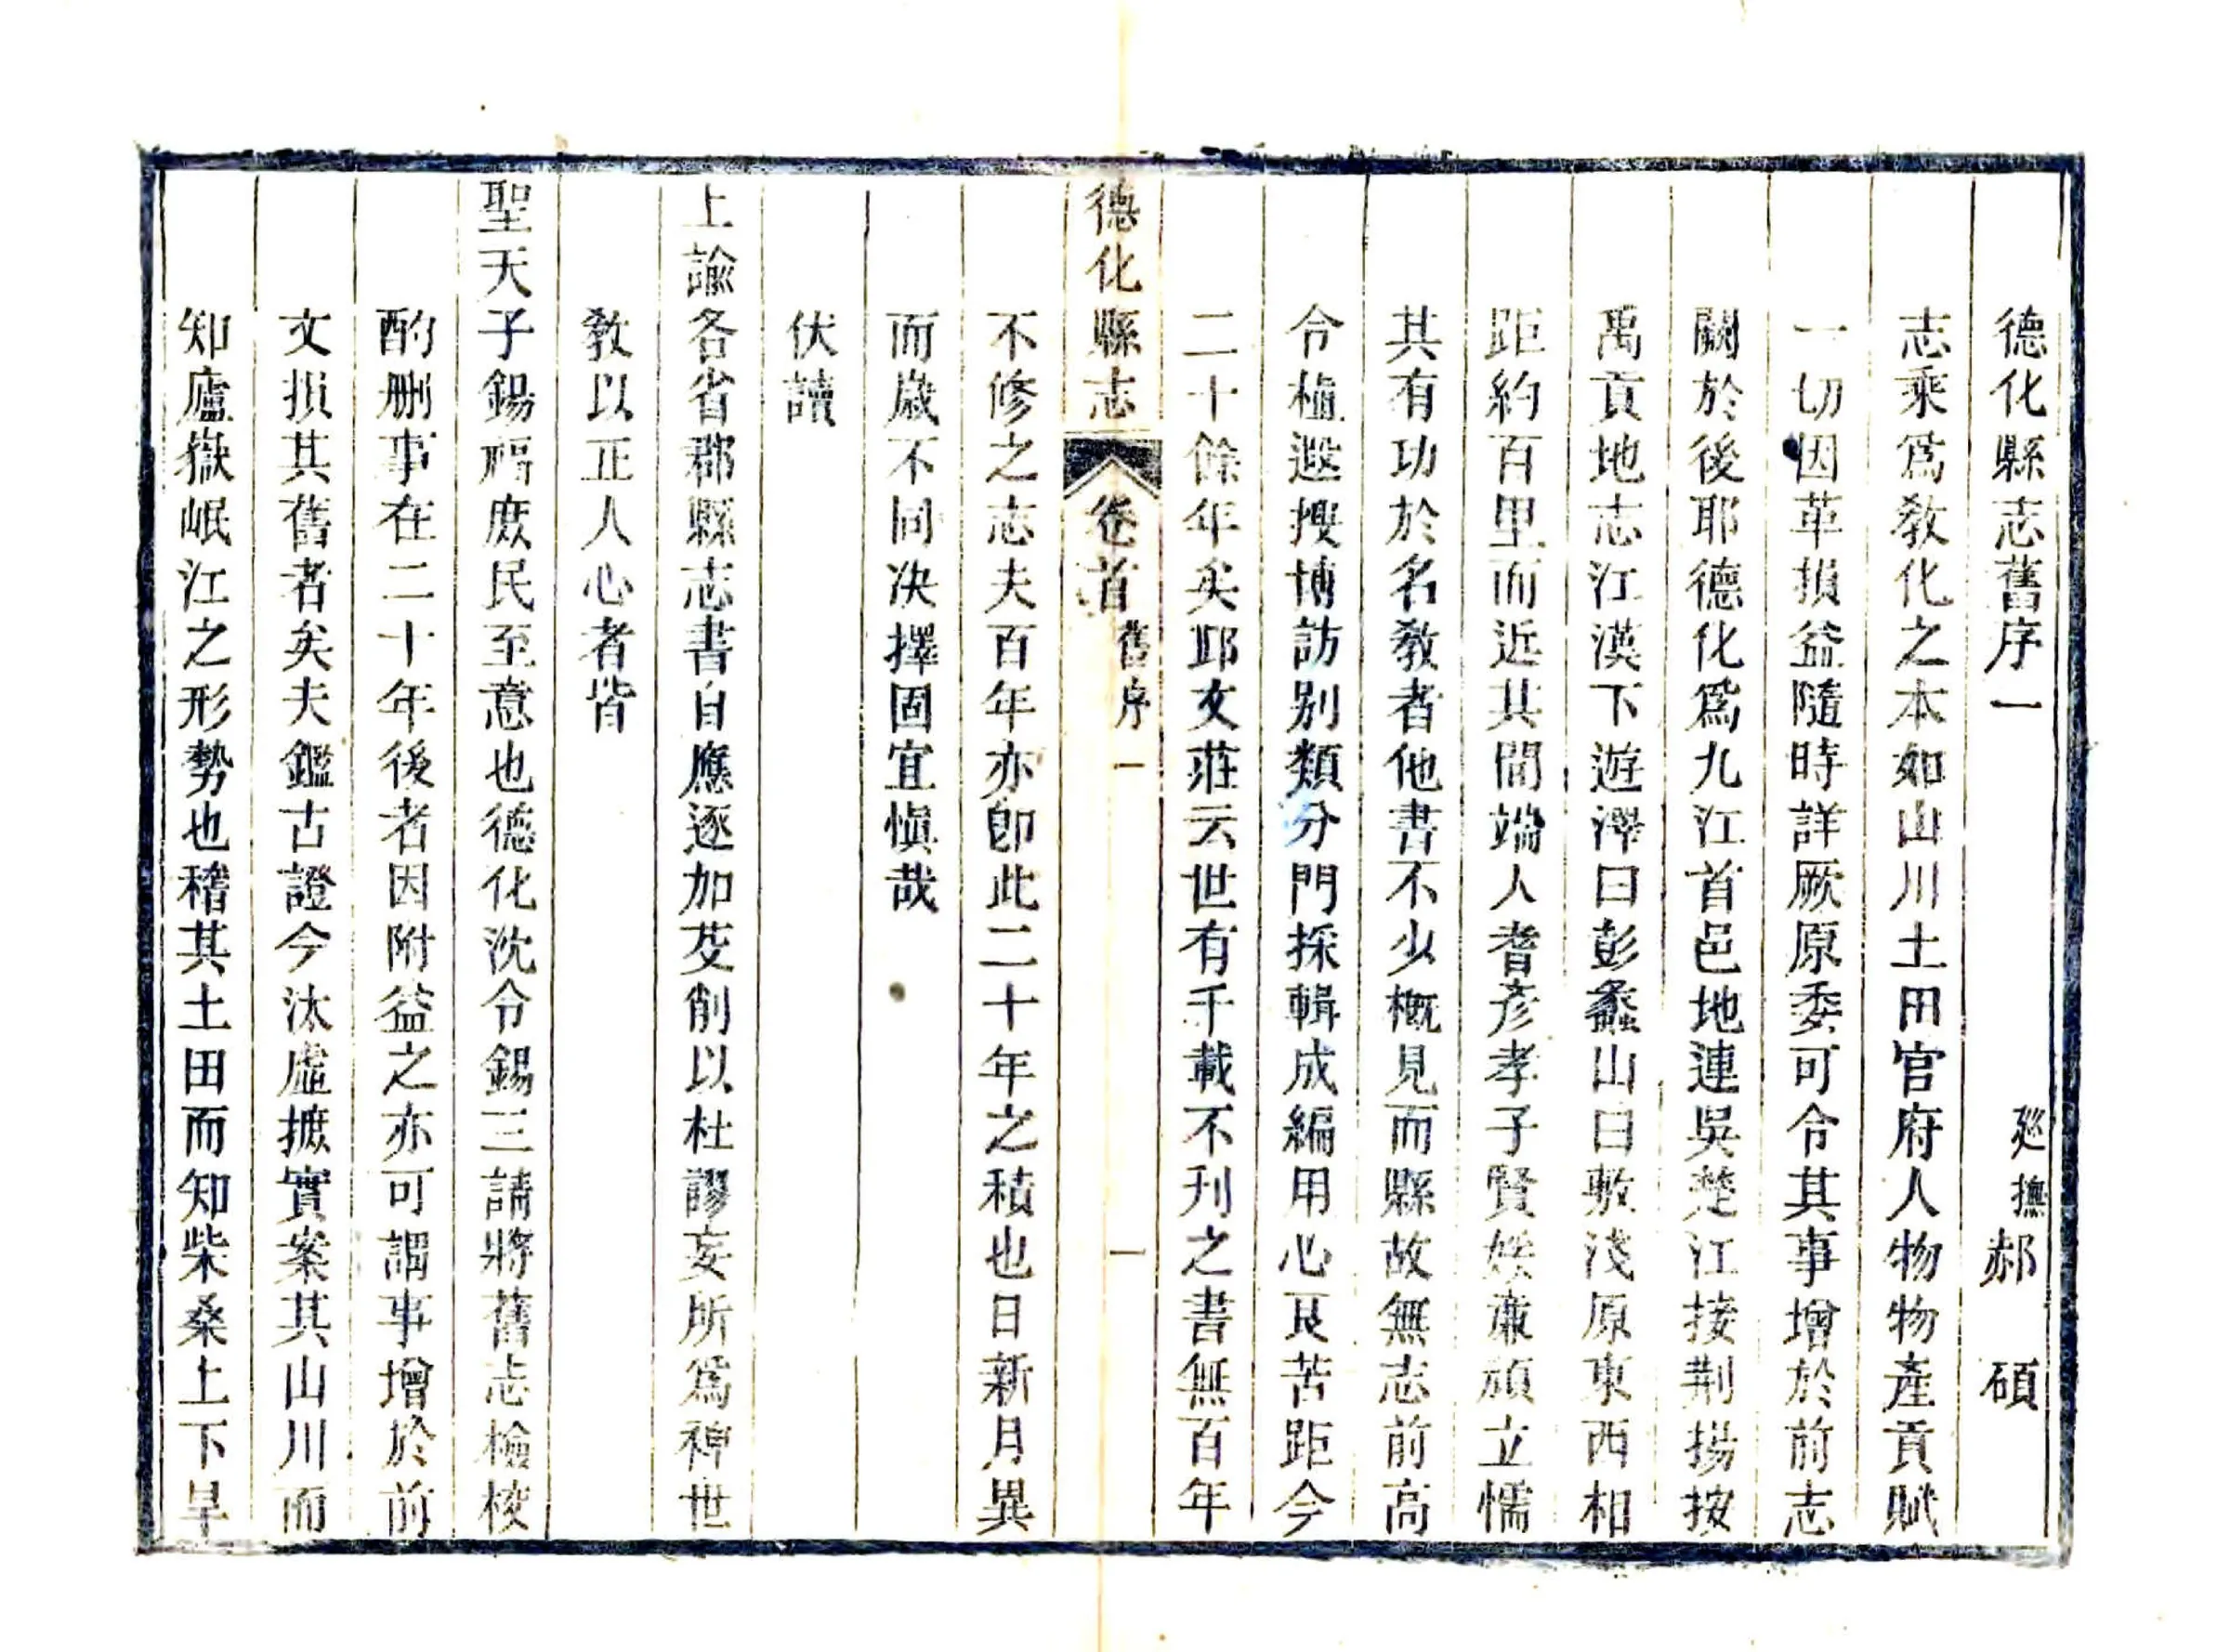 德化縣志舊序一
廵撫郝 碩
志乘爲教化之本如山川土田官府人物物產貢賦
一切因革損益隨時詳厥原委可令其事增於前志
闕於後耶德化爲九江首邑地連吳楚江接荆揚按
禹貢地志江漢下遊澤曰彭蠡山曰敷淺原東西相
距約百里而近其間端人耆彥孝子賢媛廉頑立懦
其有功於名教者他書不少概見而縣故無志前高
令植遐搜博訪别類分門採輯成編用心良苦距今
二十餘年矣邱文莊云世有千載不刋之書無百年
德化縣志 卷首 舊序 一 一
不修之志夫百年亦卽此二十年之積也日新月異
而歲不同决擇固宜愼哉
伏讀
上諭各省郡縣志書自應逐加芟削以杜謬妄所爲裨世
教以正人心者皆
聖天子錫福庶民至意也德化沈令錫三請將舊志檢校
酌删事在二十年後者因附益之亦可謂事增於前
文損其舊者矣夫鑑古證今汰虛摭實案其山川而
知廬嶽岷江之形勢也稽其土田而知柴桑上下旱